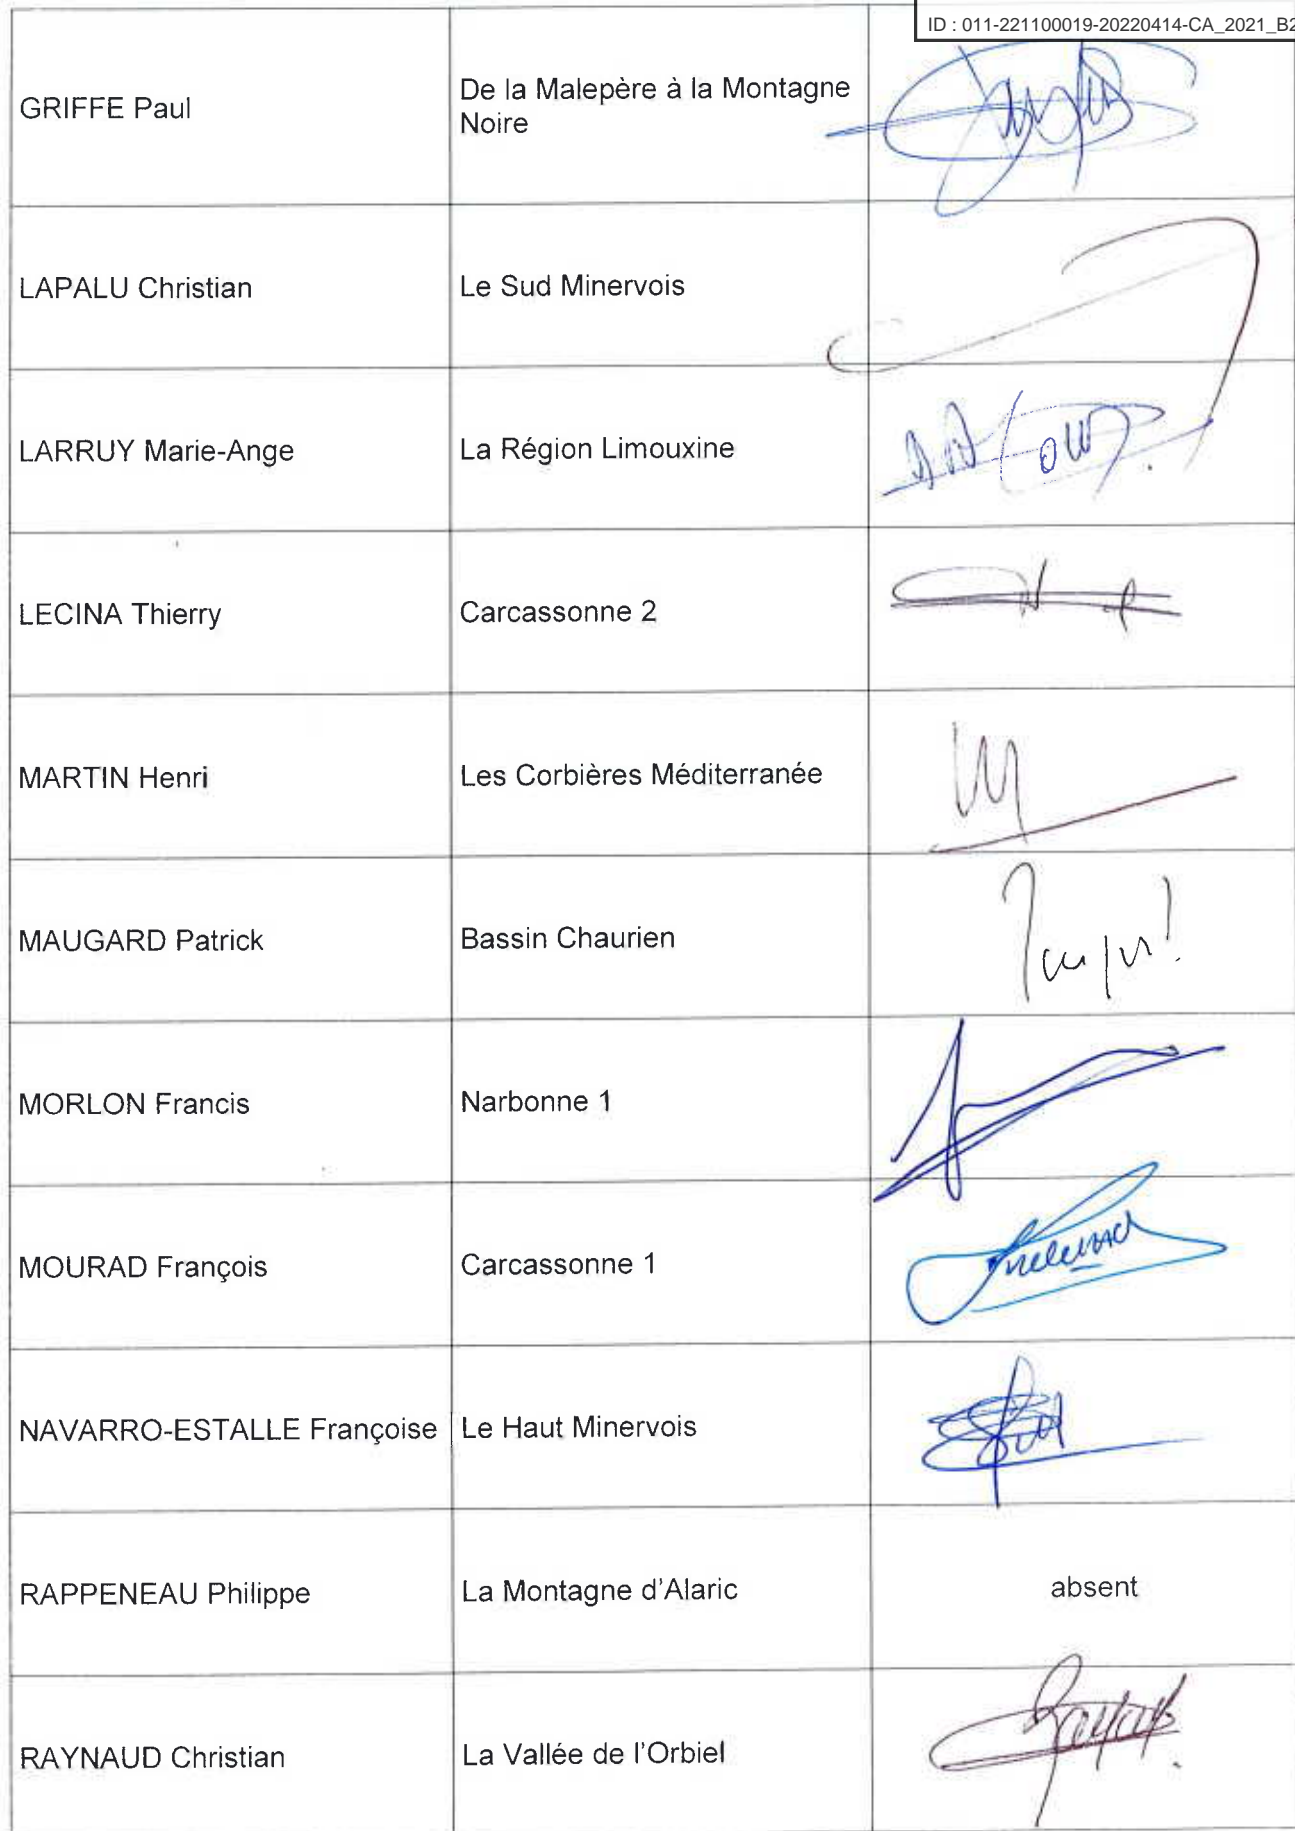 ID : 011-221100019-20220414-CA_2021_B2
GRIFFE Paul
De la Malepère à la Montagne
Noire
LAPALU Christian
Le Sud Minervois
LARRUY Marie-Ange
La Région Limouxine
LECINA Thierry
Carcassonne 2
MARTIN Henri
Les Corbières Méditerranée
MAUGARD Patrick
Bassin Chaurien
MORLON Francis
Narbonne 1
MOURAD François
Carcassonne 1
NAVARRO-ESTALLE Françoise
Le Haut Minervois
RAPPENEAU Philippe
La Montagne d'Alaric
absent
RAYNAUD Christian
La Vallée de l'Orbiel